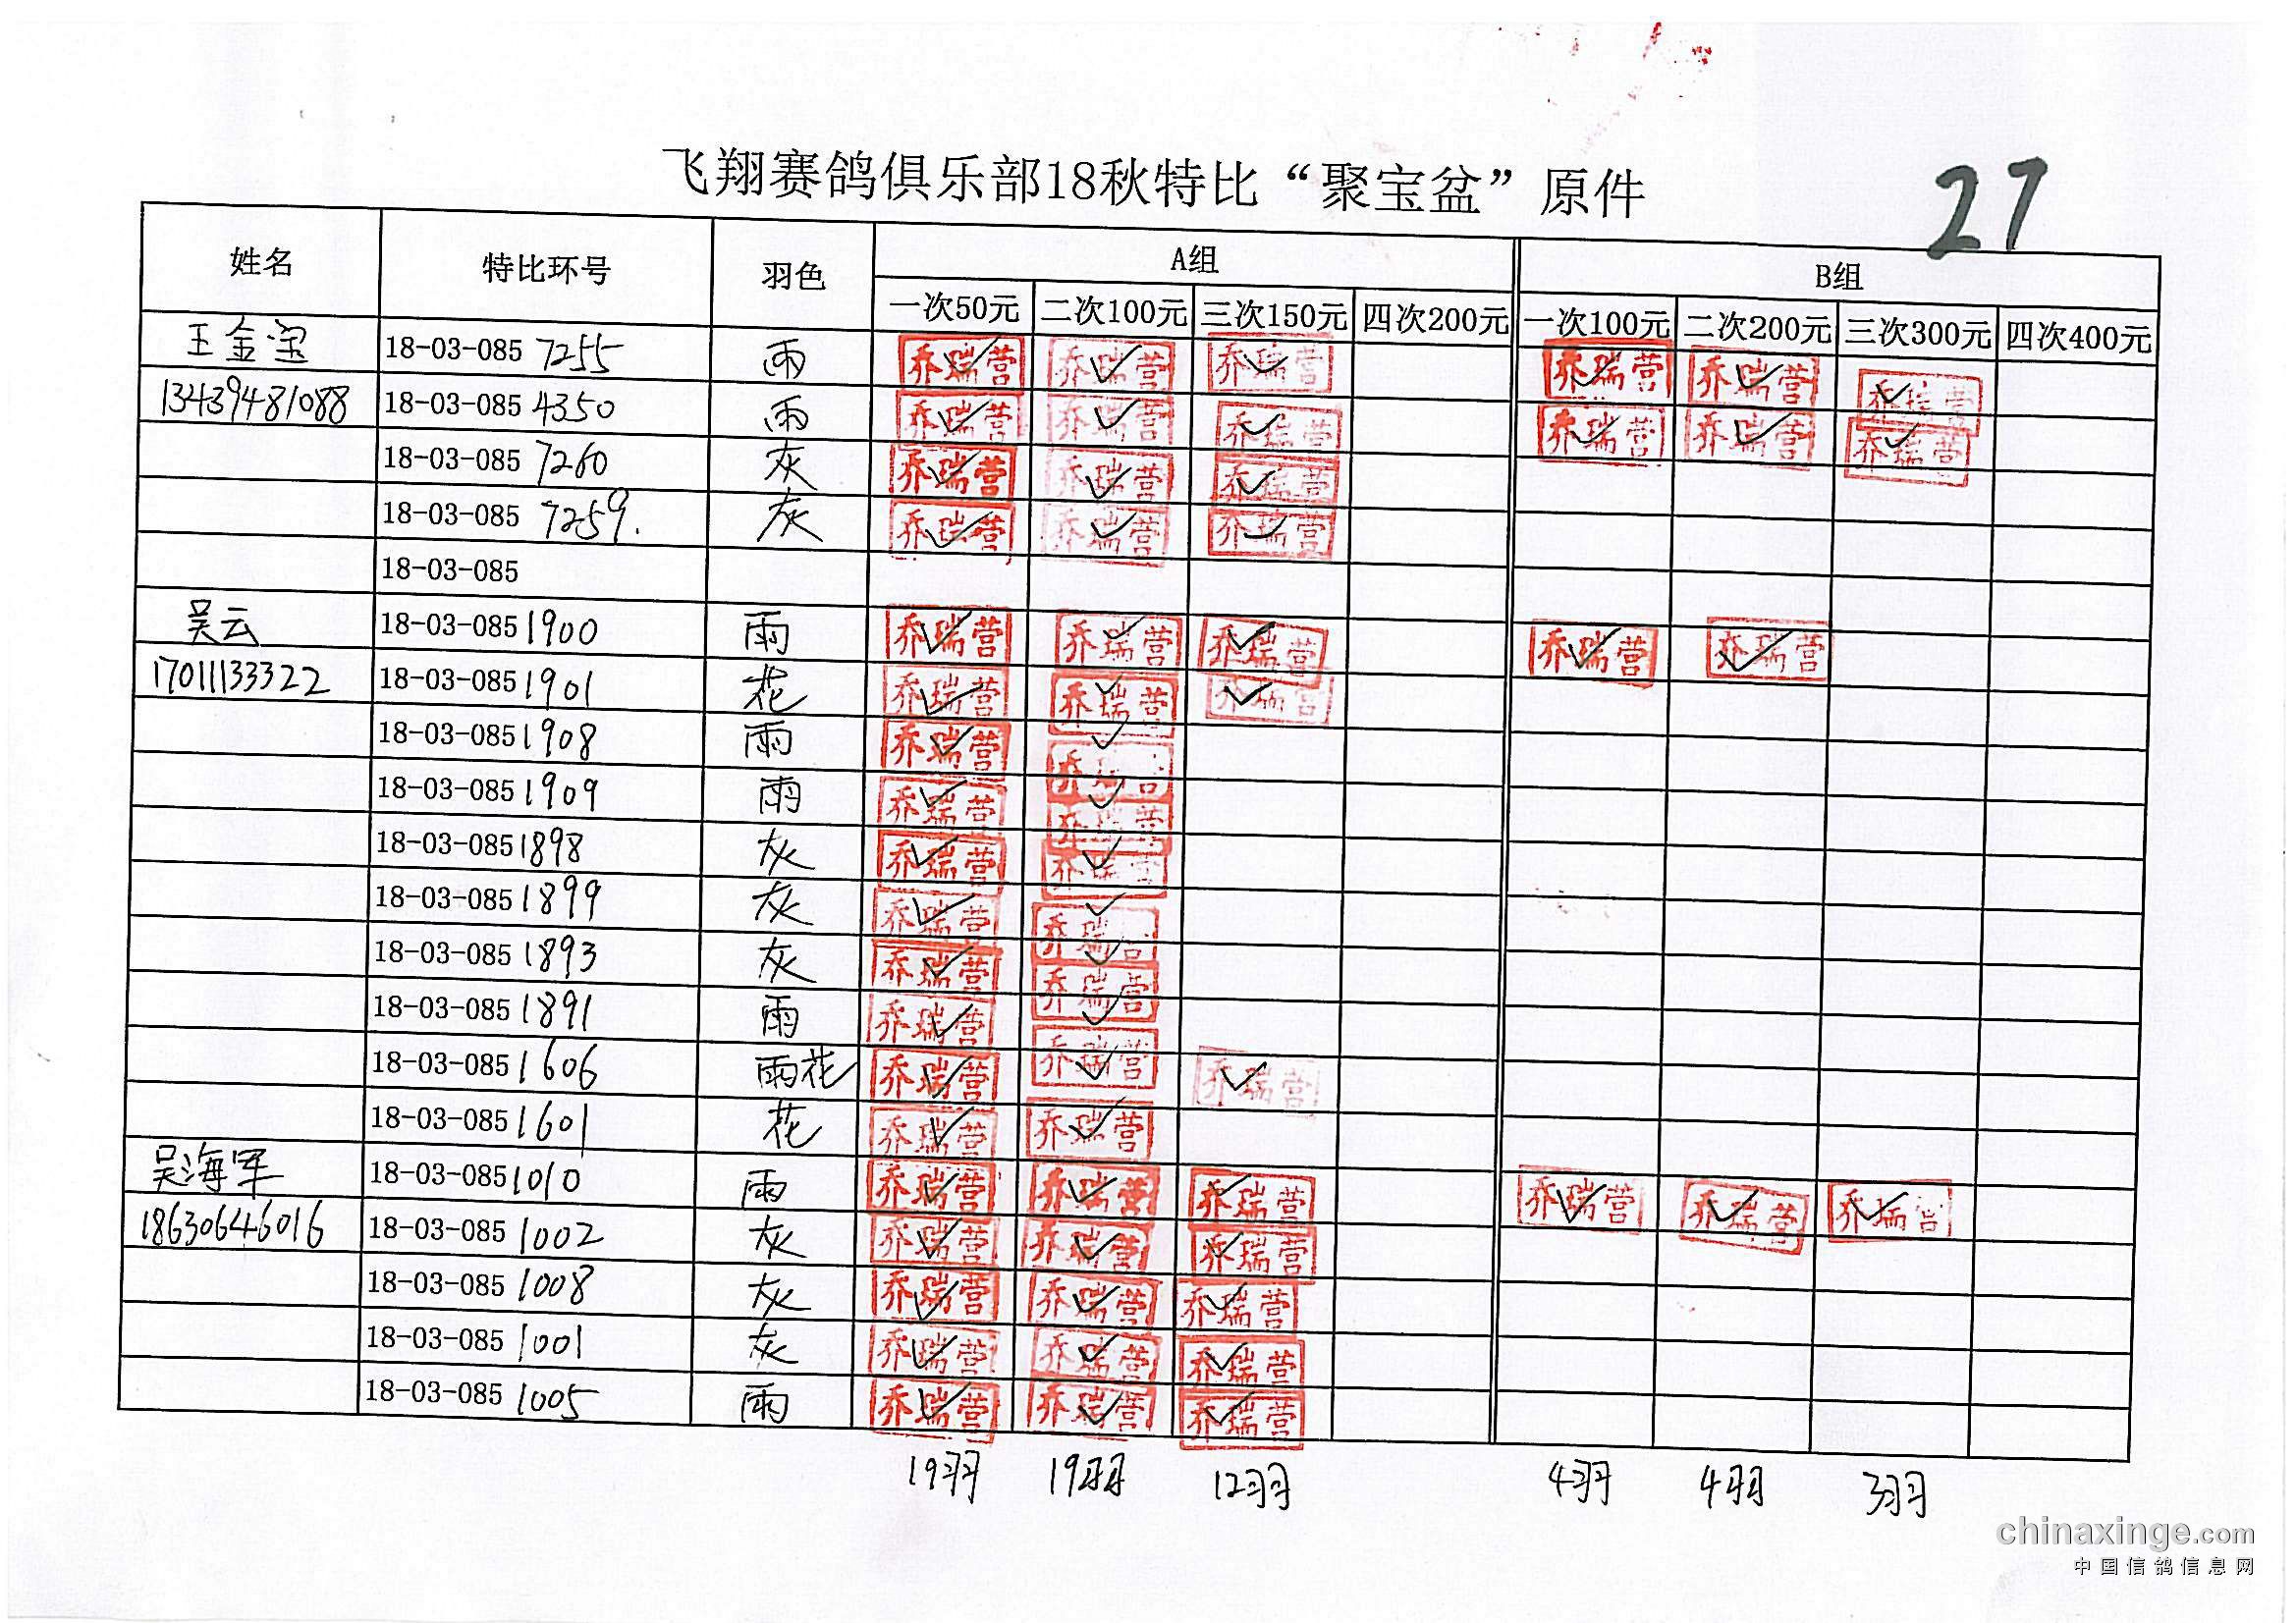 飞翔赛鸽俱乐部18秋特比“聚宝盆”原件
27
姓名 特比环号 羽色 A组 B组
一次50元 二次100元 三次150元 四次200元 一次100元 二次200元 三次300元 四次400元
王金宝 18-03-085 7255 雨 ✓乔瑞营 ✓乔瑞营 ✓乔瑞营 ✓乔瑞营 ✓乔瑞营 ✓乔瑞营
13439481088 18-03-085 4350 雨 ✓乔瑞营 ✓乔瑞营 ✓乔瑞营 ✓乔瑞营 ✓乔瑞营 ✓乔瑞营
18-03-085 7260 灰 ✓乔瑞营 ✓乔瑞营 ✓乔瑞营
18-03-085 7259. 灰 ✓乔瑞营 ✓乔瑞营 ✓乔瑞营
18-03-085
吴云 18-03-085 1900 雨 ✓乔瑞营 ✓乔瑞营 ✓乔瑞营 ✓乔瑞营 ✓乔瑞营
17011133322 18-03-085 1901 花 ✓乔瑞营 ✓乔瑞营 ✓乔瑞营
18-03-085 1908 雨 ✓乔瑞营 ✓乔瑞营
18-03-085 1909 雨 ✓乔瑞营 ✓乔瑞营
18-03-085 1898 灰 ✓乔瑞营 ✓乔瑞营
18-03-085 1899 灰 ✓乔瑞营 ✓乔瑞营
18-03-085 1893 灰 ✓乔瑞营 ✓乔瑞营
18-03-085 1891 雨 ✓乔瑞营 ✓乔瑞营
18-03-085 1606 雨花 ✓乔瑞营 ✓乔瑞营 ✓乔瑞营
18-03-085 1601 花 ✓乔瑞营 ✓乔瑞营
吴海军 18-03-085 1010 雨 ✓乔瑞营 ✓乔瑞营 ✓乔瑞营 ✓乔瑞营 ✓乔瑞营 ✓乔瑞营
18630646016 18-03-085 1002 灰 ✓乔瑞营 ✓乔瑞营 ✓乔瑞营
18-03-085 1008 灰 ✓乔瑞营 ✓乔瑞营 ✓乔瑞营
18-03-085 1001 灰 ✓乔瑞营 ✓乔瑞营 ✓乔瑞营
18-03-085 1005 雨 ✓乔瑞营 ✓乔瑞营 ✓乔瑞营
19羽 19羽 12羽 4羽 4羽 3羽
chinaxinge.com
中国信鸽信息网